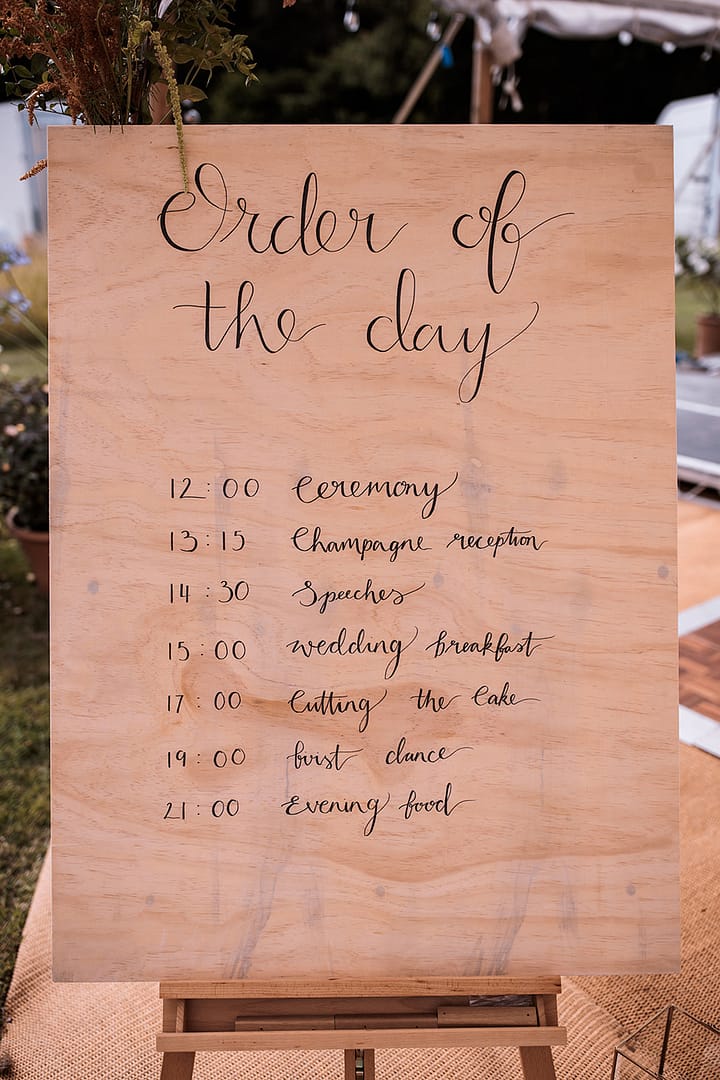 Order of
the day
12:00 Ceremony
13:15 Champagne reception
14:30 Speeches
15:00 wedding breakfast
17:00 Cutting the Cake
19:00 first dance
21:00 Evening food